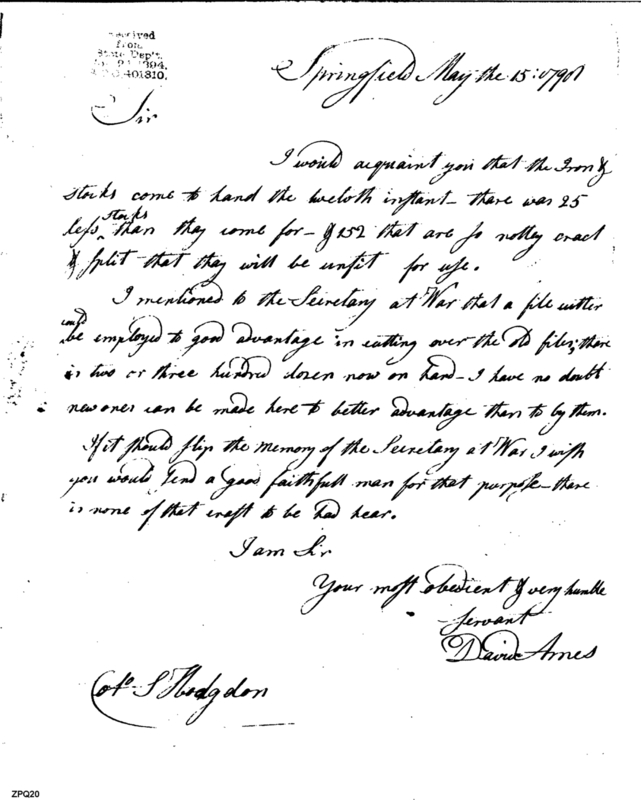 Received
from
State Dep't.
1894.
401810.
Springfield May the 15: 1798
Sir
I would acquaint you that the Iron &
stocks come to hand the twelvth instant – there was 25
less stocks than they come for – & 252 that are so notley cract
& split – that they will be unfit for use.
I mentioned to the Secretary at War that a file cutter
could be employed to good advantage in cutting over the old files; there
is two or three hundred dozen now on hand – I have no doubt
new ones can be made here to better advantage than to by them.
If it should slip the memory of the Secretary at War I wish
you would send a good faithfull man for that purpose – there
is none of that craft to be had hear.
I am Sir
Your most obedient & very humble
servant
David Ames
Colo. S Hodgdon
ZPQ20